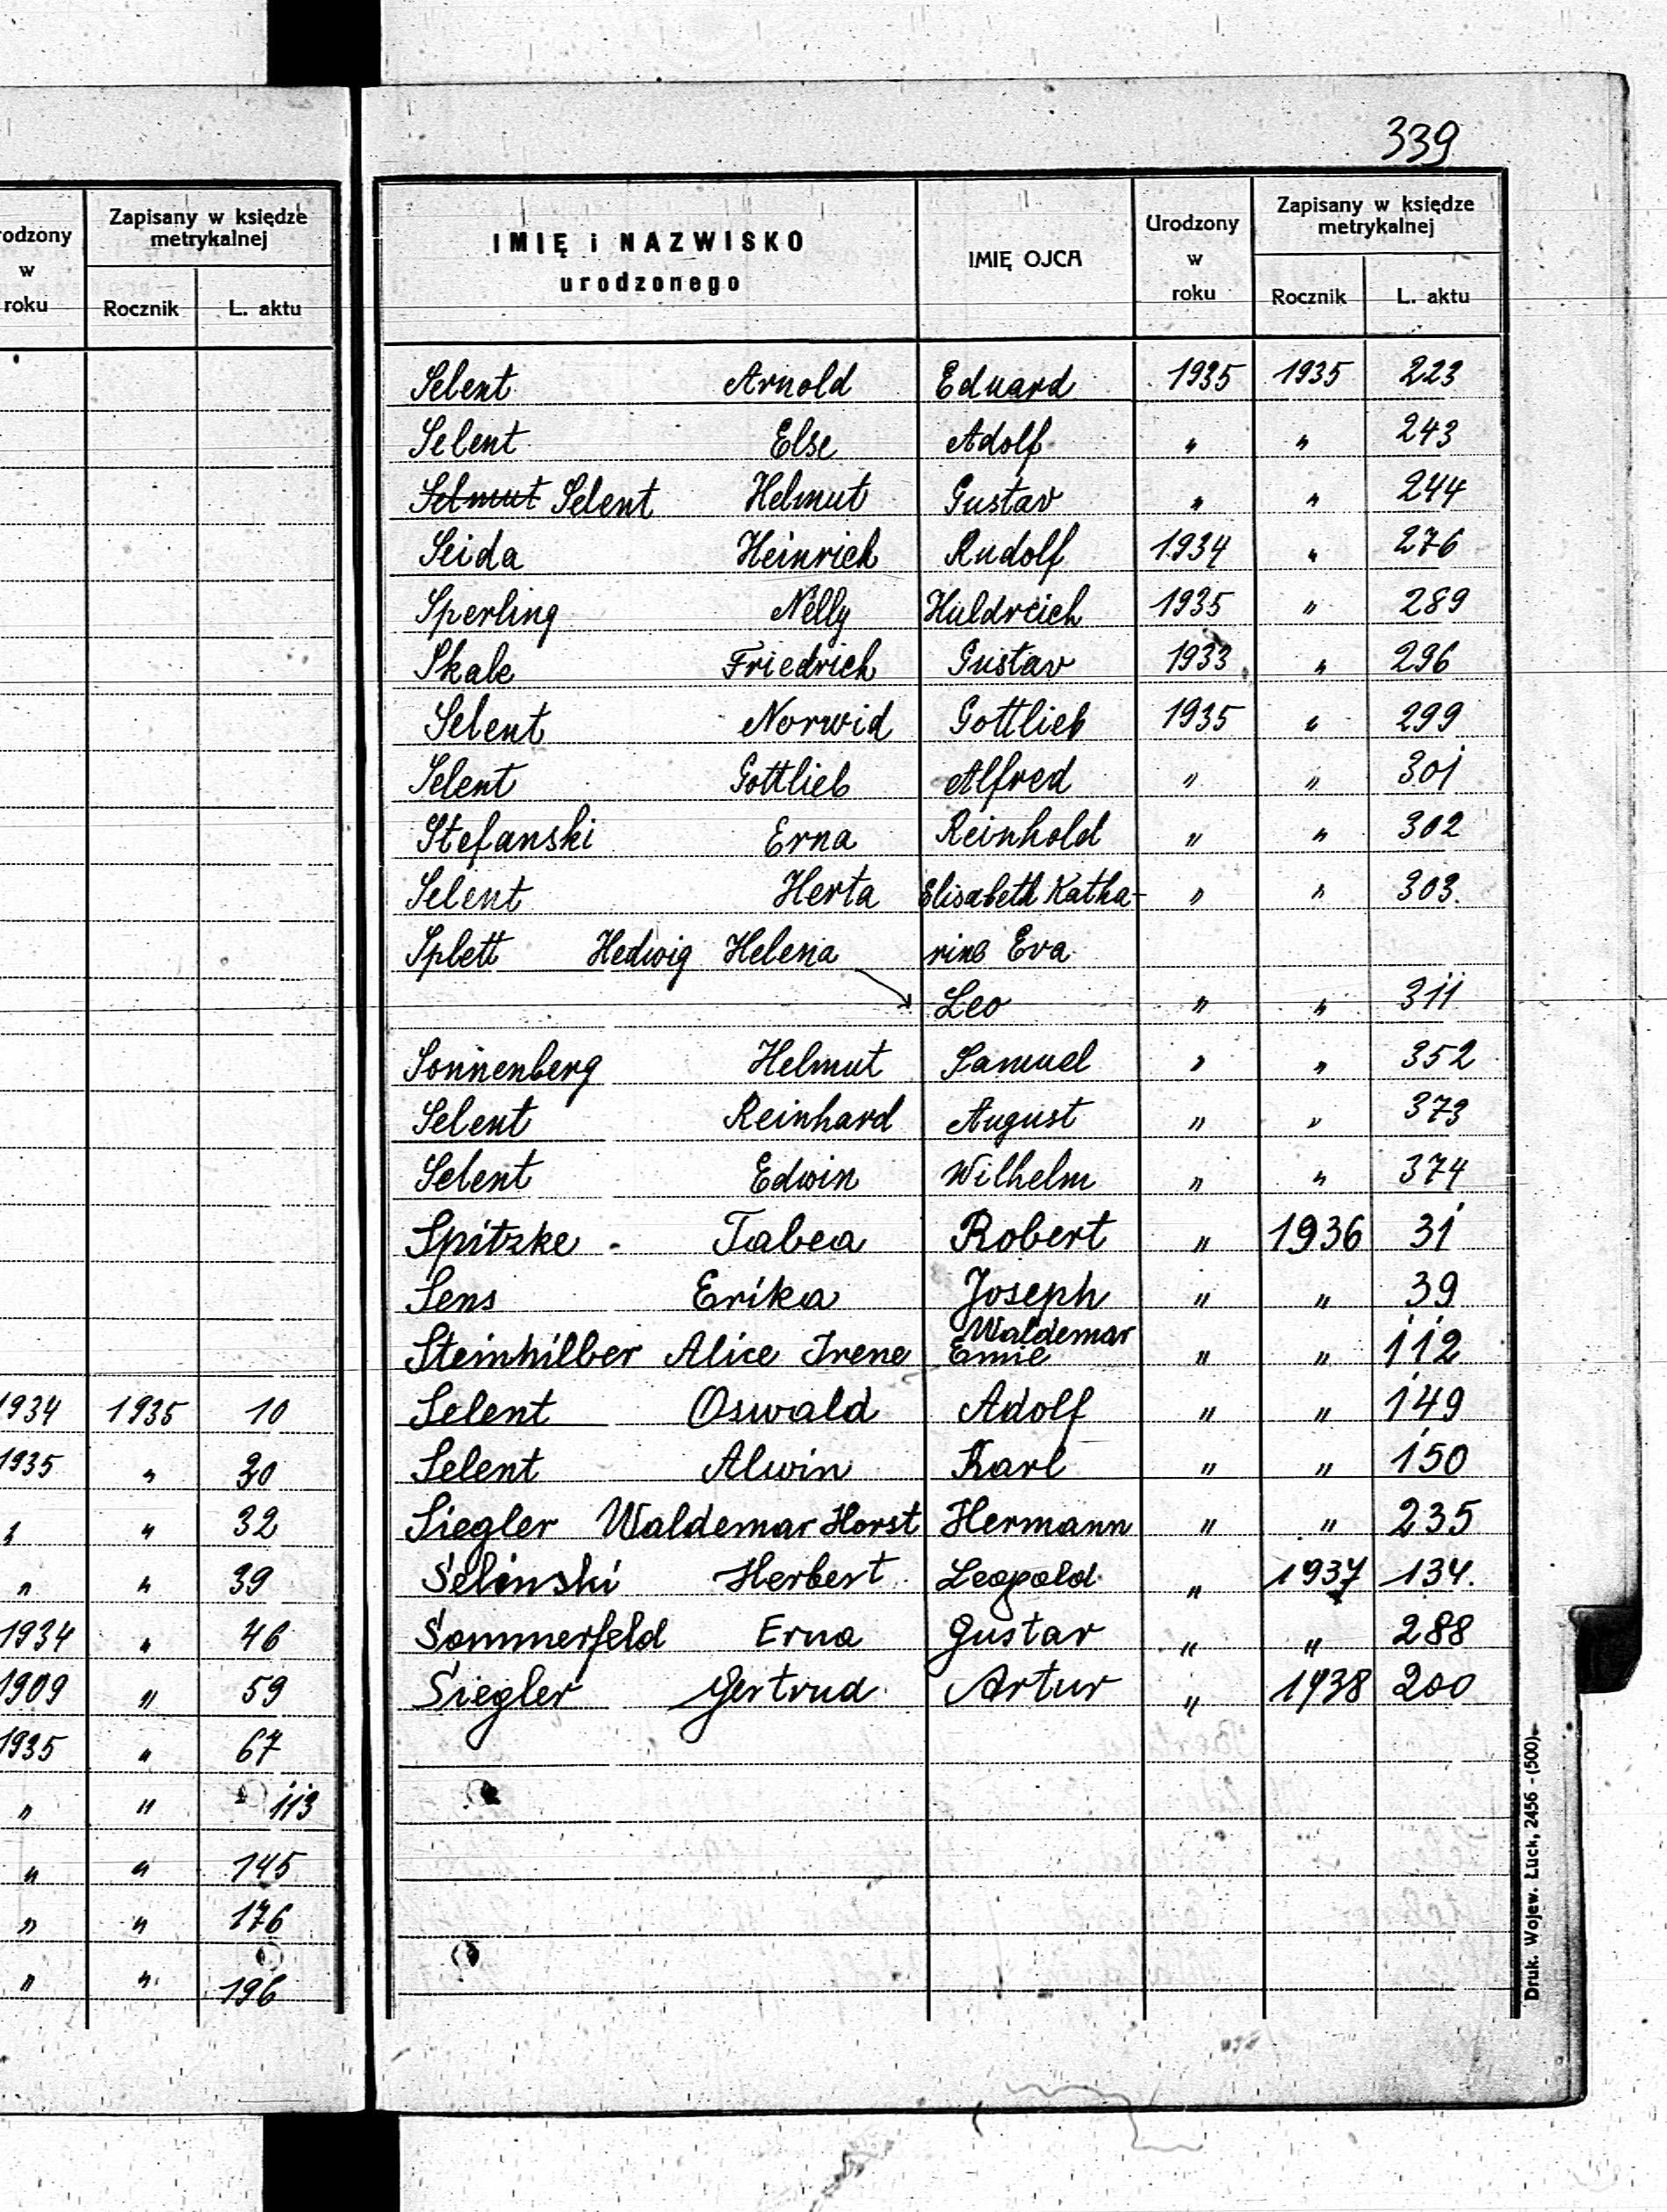 339
rodzony w roku
Zapisany w księdze metrykalnej
Rocznik L. aktu
1934 1935 10
1935 " 30
" " 32
" " 39
1934 " 46
1909 " 59
1935 " 67
" " 113
" " 145
" " 176
" " 196
IMIĘ i NAZWISKO urodzonego
IMIĘ OJCA
Urodzony w roku
Zapisany w księdze metrykalnej
Rocznik L. aktu
Selent Arnold Eduard 1935 1935 223
Selent Else Adolf " " 243
Selmut Selent Helmut Gustav " " 244
Seida Heinrich Rudolf 1934 " 276
Sperling Nelly Huldreich 1935 " 289
Skale Friedrich Gustav 1933 " 296
Selent Norwid Gottlieb 1935 " 299
Selent Gottlieb Alfred " " 301
Stefanski Erna Reinhold " " 302
Selent Herta Elisabeth Katha- " " 303.
Splett Hedwig Helena rine Eva
Leo " " 311
Sonnenberg Helmut Samuel " " 352
Selent Reinhard August " " 373
Selent Edwin Wilhelm " " 374
Spitzke Tabea Robert " 1936 31
Sens Erika Joseph " " 39
Waldemar
Steinhilber Alice Irene " " 112
Selent Oswald Adolf " " 149
Selent Alwin Karl " " 150
Siegler Waldemar Horst Hermann " " 235
Selinski Herbert Leopold " 1937 134.
Sommerfeld Erna Gustav " " 288
Siegler Gertrud Artur " 1938 200
Druk. Wojew. Łuck, 2456 - (500).